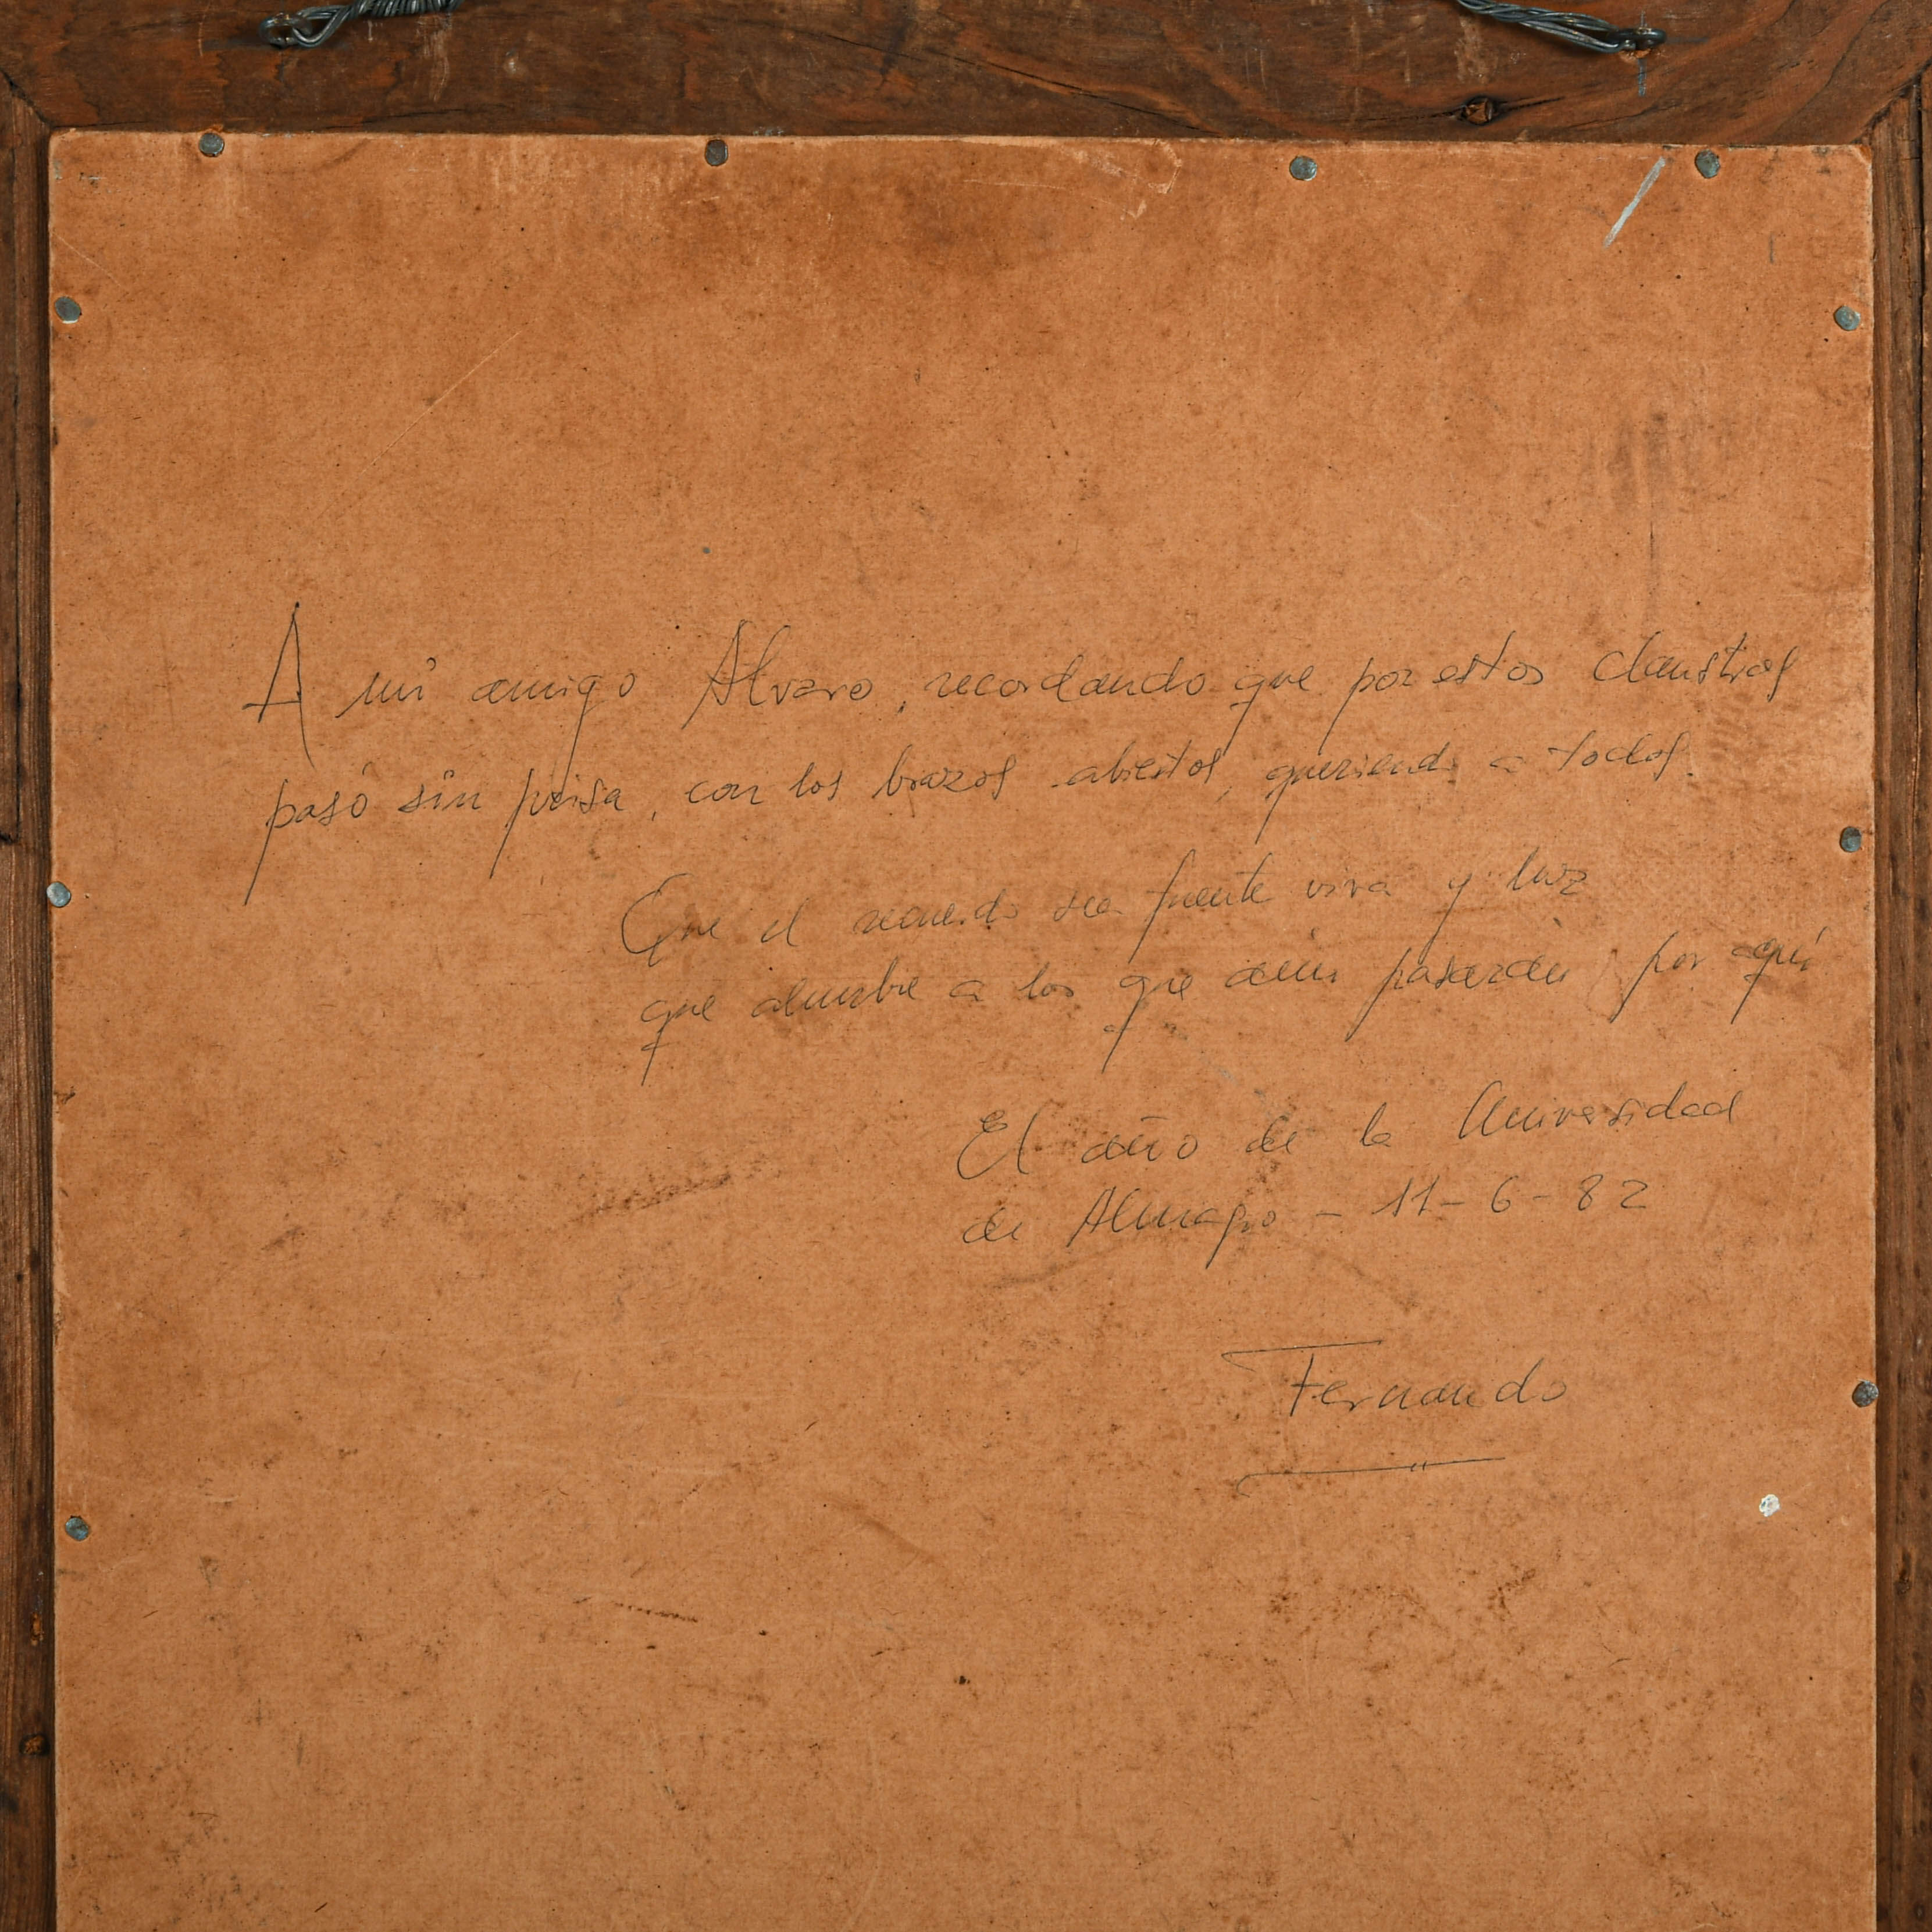 A mi amigo Alvaro, recordando que por estos claustros
pasó sin prisa, con los brazos abiertos, queriendo a todos.
Que el recuerdo sea fuente viva y luz
que alumbre a los que aún pasarán por aquí
El año de la Universidad
de Almagro - 11-6-82
Fernando